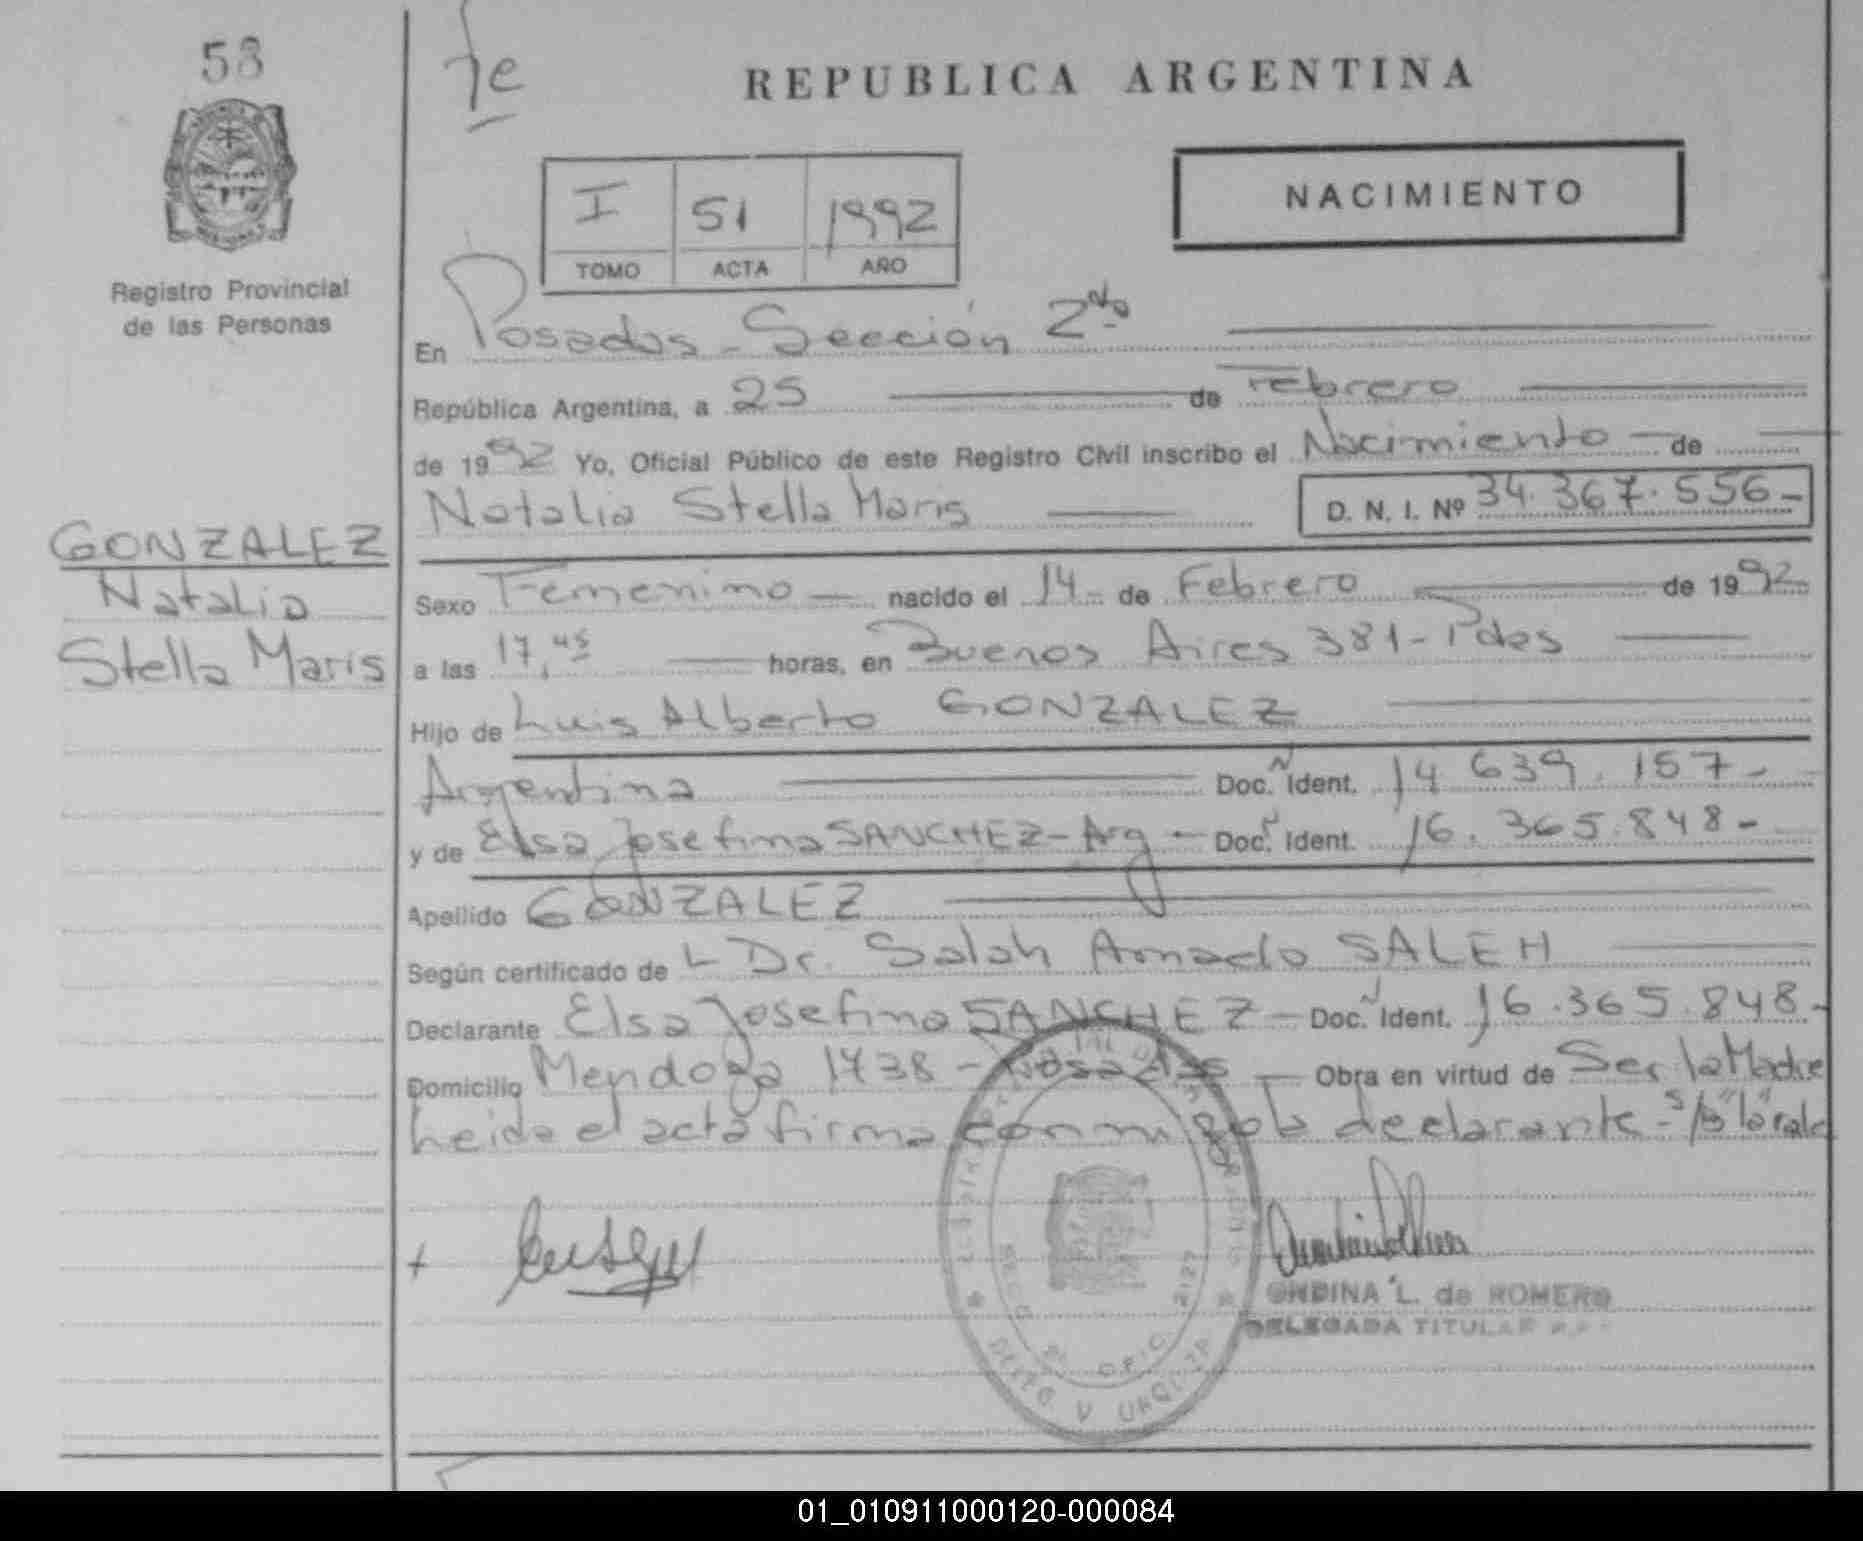 53
fe
REPUBLICA ARGENTINA
Registro Provincial
de las Personas
I 51 1992
TOMO ACTA AÑO
NACIMIENTO
En Posadas - Sección 2da
República Argentina, a 25 de Febrero
de 1992 Yo, Oficial Público de este Registro Civil inscribo el Nacimiento - de
Natalia Stella Maris
D. N. I. Nº 34.367.556-
GONZALEZ
Natalia
Stella Maris
Sexo Femenino - nacido el 14 - de Febrero de 1992
a las 17,45 horas, en Buenos Aires 381 - Pdas
Hijo de Luis Alberto GONZALEZ
Argentina Doc. Ident. 14.639.157-
y de Elsa Josefina SANCHEZ - Arg - Doc. Ident. 16.365.848-
Apellido GONZALEZ
Según certificado de L Dr. Salah Amado SALEH
Declarante Elsa Josefina SANCHEZ - Doc. Ident. 16.365.848-
Domicilio Mendoza 1438 - Posadas - Obra en virtud de Ser la Madre
Leida el acta firma conmigo la declarante - "la" vale
ONDINA L. de ROMERO
DELEGADA TITULAR
01_010911000120-000084